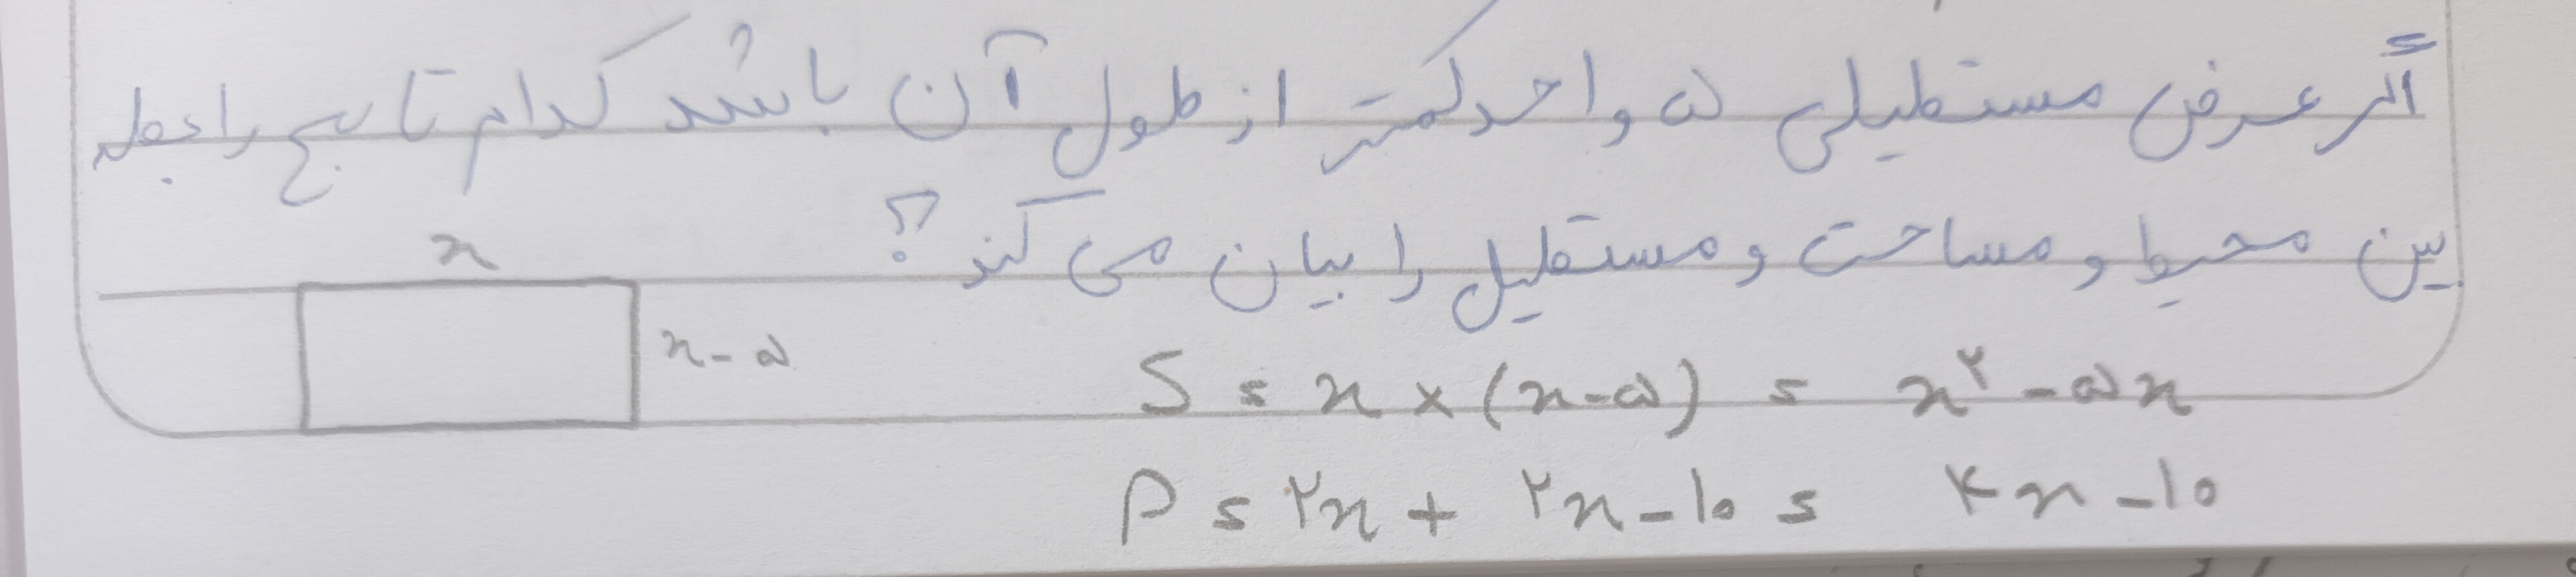 اگر عرض مستطیلی ۵ واحد کمتر از طول آن باشد کدام تابع رابطه
بین محیط و مساحت و مستطیل را بیان می کند؟
x
x-۵
S = x × (x-۵) = x^۲ - ۵x
P = ۲x + ۲x - ۱۰ = ۴x - ۱۰